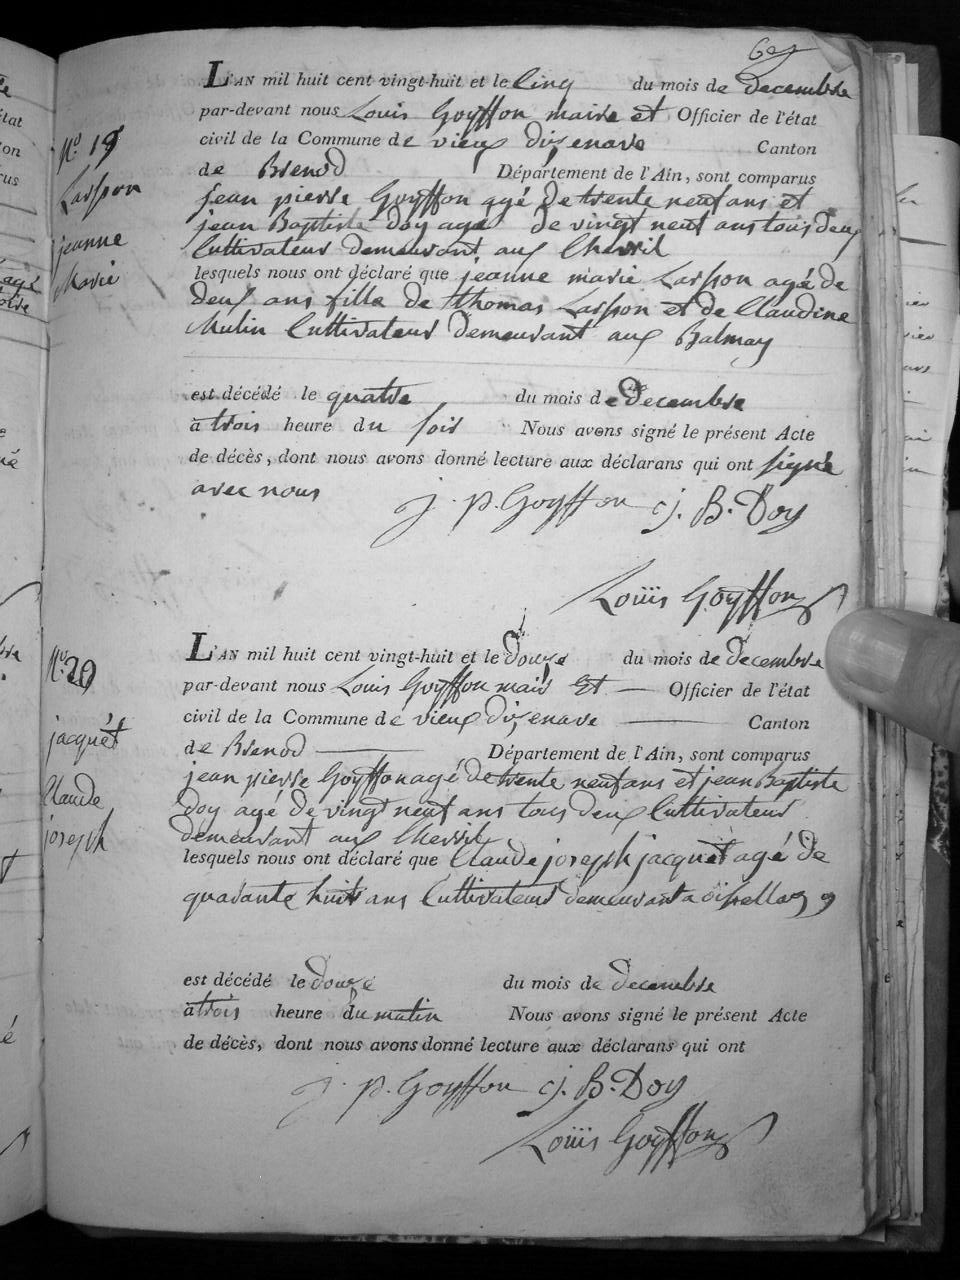 L'AN mil huit cent vingt-huit et le cinq du mois de decembre
par-devant nous Louis Goyffon maire et Officier de l'état
civil de la Commune de vieux dizenave Canton
de Brenod Département de l'Ain, sont comparus
jean pierre Goyffon agé de trente neuf ans et
jean Baptiste Doy agé de vingt neuf ans tous deux
Cultivateur demeurant aux Chevril
lesquels nous ont déclaré que jeanne marie Lasson agé de
deux ans fille de thomas Lasson et de Claudine
Mulin Cultivateur demeurant aux Balmay
est décédé le quatre du mois de Decembre
à trois heure du soir Nous avons signé le présent Acte
de décès, dont nous avons donné lecture aux déclarans qui ont signé
avec nous
j. p. Goyffon j. B. Doy
Louis Goyffon
N.º 19
Lasson
jeanne
Marie
L'AN mil huit cent vingt-huit et le douze du mois de decembre
par-devant nous Louis Goyffon mair Et Officier de l'état
civil de la Commune de vieux dizenave Canton
de Brenod Département de l'Ain, sont comparus
jean pierre Goyffon agé de trente neuf ans et jean Baptiste
Doy agé de vingt neuf ans tous deux Cultivateur
demeurant aux Chevril
lesquels nous ont déclaré que Claude joseph jacquet agé de
quarante huit ans Cultivateur demeurant a
est décédé le douze du mois de decembre
à trois heure du matin Nous avons signé le présent Acte
de décès, dont nous avons donné lecture aux déclarans qui ont
j. p. Goyffon j. B. Doy
Louis Goyffon
N.º 20
jacquet
Claude
joseph